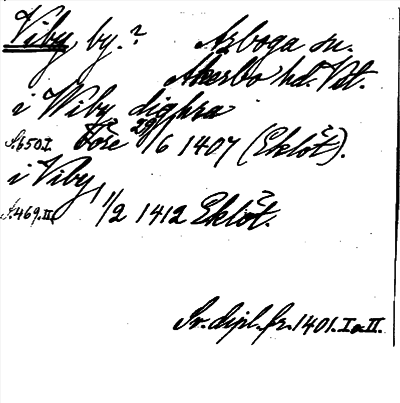 Viby by.? Arboga sn.
Akerbo hd. Vstm.
i Wiby dighra
S. 650. I. före 29/6 1407 (Eklöf).
i Viby
S. 469. II. 1/2 1412 Eklöf.
Sv. dipl. fr. 1401. I o II.